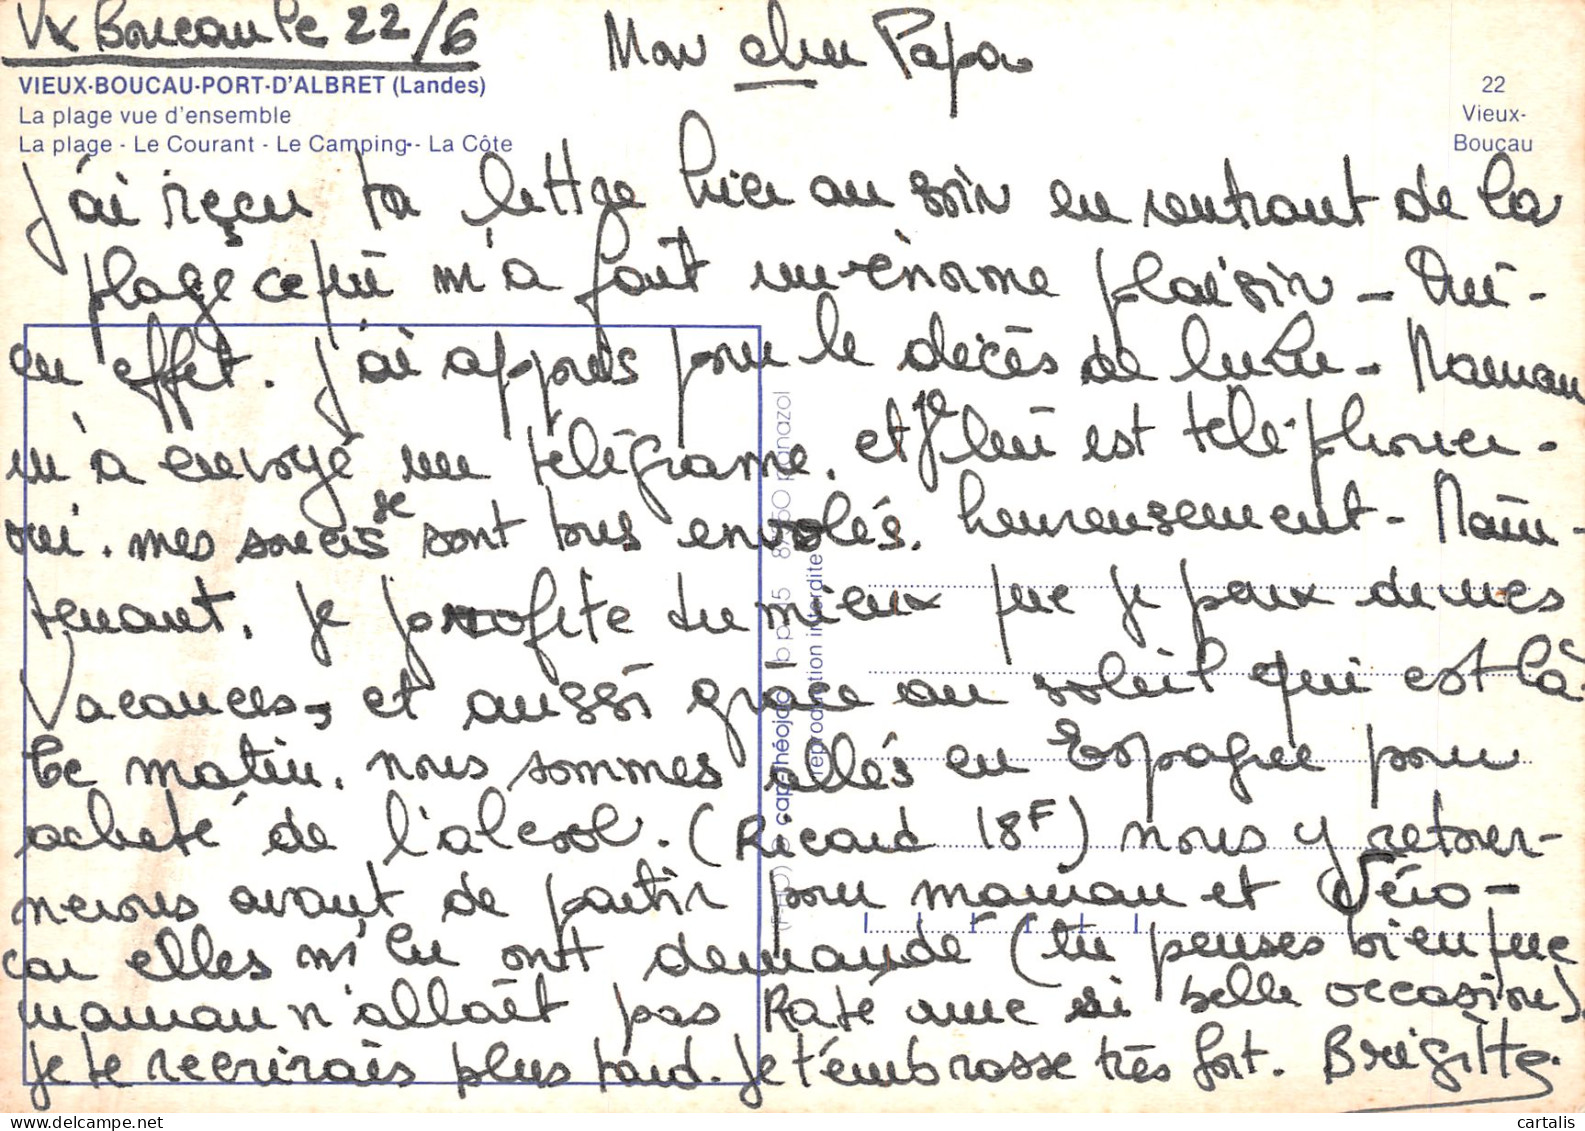 Vx Boucau le 22/6
Mon cher Papa
VIEUX-BOUCAU-PORT-D'ALBRET (Landes)
La plage vue d'ensemble
La plage - Le Courant - Le Camping - La Côte
22
Vieux-
Boucau
J'ai reçu ta lettre hier au soir en rentrant de la
plage ce qui m'a fait un énorme plaisir - Oui -
en effet. J'ai appris pour le décès de Lulu - Maman
m'a envoyé un télégrame. et je lui est téléphoner -
oui. mes soucis se sont tous envolés. heureusement - Main-
tenant. je profite du mieux que je peux de mes
Vacances, et aussi grâce au soleil qui est là.
Ce matin. nous sommes allés en Espagne pour
acheté de l'alcool. (Ricard 18F) nous y retour-
nerons avant de partir pour maman et Véro -
car elles m'en ont demandé (tu penses bien que
maman n'allait pas Raté une si belle occasion)
Je te recrirais plus tard. Je t'embrasse très fort. Brigitte.
cap-théojac
reproduction interdite
panazol
cartalis